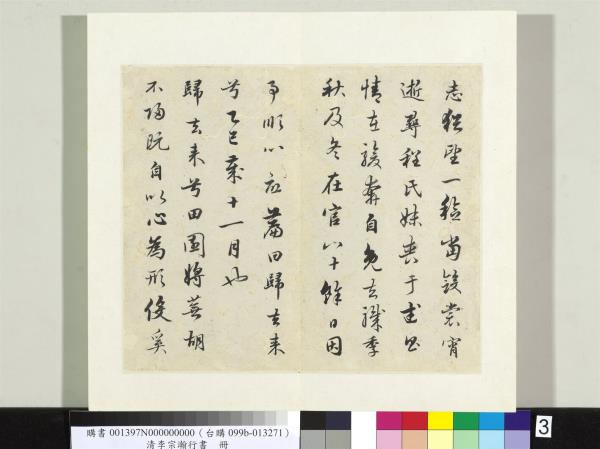 志猶望一稔當斂裳宵
逝尋程氏妹喪于武昌
情在駿奔自免去職季
秋及冬在官八十餘日因
事順心命篇曰歸去來
兮乙巳歲十一月也
歸去來兮田園將蕪胡
不歸既自以心為形役奚
購書 001397N000000000 (台購 099b-013271)
清李宗瀚行書 冊
3